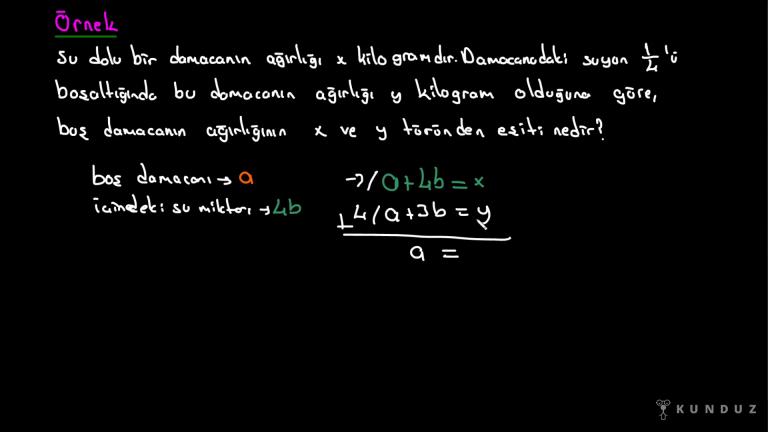 Örnek
Su dolu bir damacanın ağırlığı x kilogramdır. Damacanadaki suyun 1/4 'ü
boşaltığında bu damacanın ağırlığı y kilogram olduğuna göre,
boş damacanın ağırlığının x ve y türünden eşiti nedir?
boş damacanı → a
içindeki su miktarı → 4b
-3/ a+4b = x
4/ a+3b = y
+
a =
KUNDUZ